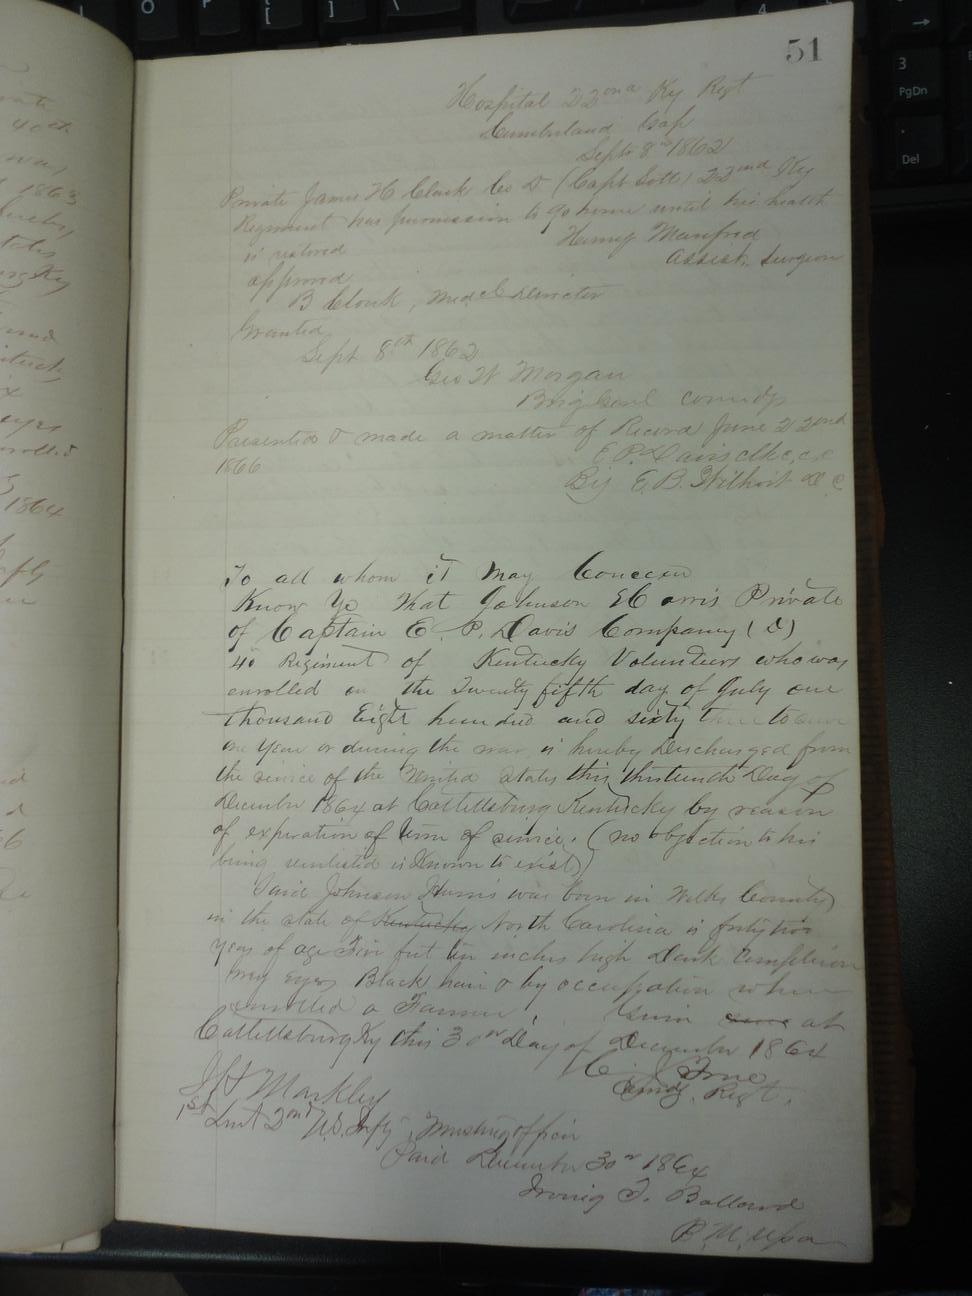 51
Hospital 22nd Ky Regt
Cumberland Gap
Sept 8th 1862
Private James H Clark Co D (Capt Sott) 22nd Ky
Regiment has permission to go home until his health
is restored
Henry Manfred
Assist. Surgeon
approved
B Clark, Medcl Director
Granted
Sept 8th 1862
Geo W Morgan
Brig Genl comdg
Presented & made a matter of Record June 22nd
1866
E. P. Davis clk. c. c
By E. B. Wilhoit D. C
To all whom it May Concern
Know Ye That Johnson Harris Private
of Captain E. P. Davis Company (D)
40 Regiment of Kentucky Volunteers who was
enrolled on the Twenty fifth day of July one
thousand Eight hundred and sixty three to serve
one year or during the war is hereby Discharged from
the service of the United States this thirteenth Day of
December 1864 at Catlettsburg Kentucky by reason
of expiration of term of service. (no objection to his
being reenlisted is Known to exist)
Said Johnson Harris was born in Wilks County
in the state of Kentucky North Carolina is forty two
years of age Five feet ten inches high Dark Complexion
eyes Black hair & by occupation when
enrolled a Farmer. Given at
Catlettsburg Ky this 30th Day of December 1864
Comdg. Regt.
Markley
1st Lieut 2nd U.S. Infty, Musting officer
Paid December 30th 1864
Irving T. Bollard
P. M. USA